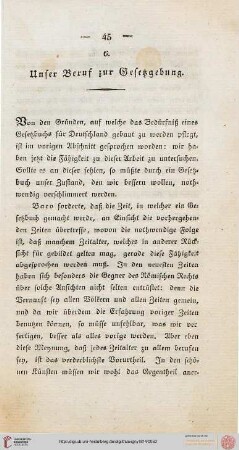 — 45 —
6.
Unser Beruf zur Gesetzgebung.
Von den Gründen, auf welche das Bedürfniß eines
Gesetzbuchs für Deutschland gebaut zu werden pflegt,
ist im vorigen Abschnitt gesprochen worden: wir ha-
ben jetzt die Fähigkeit zu dieser Arbeit zu untersuchen.
Sollte es an dieser fehlen, so müßte durch ein Gesetz-
buch unser Zustand, den wir bessern wollen, noth-
wendig verschlimmert werden.
Baco forderte, daß die Zeit, in welcher ein Ge-
setzbuch gemacht werde, an Einsicht die vorhergehen-
den Zeiten übertreffe, wovon die nothwendige Folge
ist, daß manchem Zeitalter, welches in anderer Rück-
sicht für gebildet gelten mag, gerade diese Fähigkeit
abgesprochen werden muß. In den neuesten Zeiten
haben sich besonders die Gegner des Römischen Rechts
über solche Ansichten nicht selten entrüstet: denn die
Vernunft sey allen Völkern und allen Zeiten gemein,
und da wir überdem die Erfahrung voriger Zeiten
benutzen können, so müsse unfehlbar, was wir ver-
fertigen, besser als alles vorige werden. Aber eben
diese Meynung, daß jedes Zeitalter zu allem berufen
sey, ist das verderblichste Vorurtheil. In den schö-
nen Künsten müssen wir wohl das Gegentheil aner-